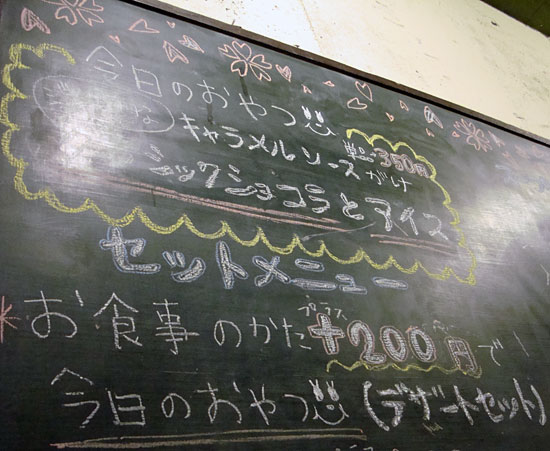 今日のおやつ
キャラメルソースがけ
単品350円
ショックショコラとアイス
セットメニュー
*お食事のかた
プラス
+200円で!
今日のおやつ(デザートセット)